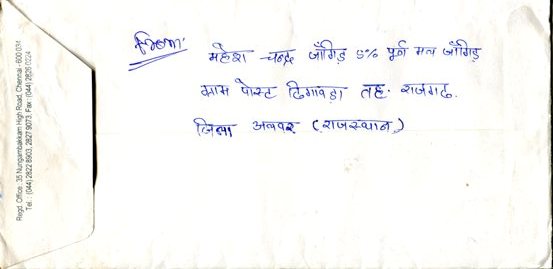 From:
महेश चन्द्र जाँगिड़ S/o पूर्ण मल जाँगिड़
ग्राम पोस्ट ढिगावड़ा तह. राजगढ़.
जिला अलवर (राजस्थान)
Regd. Office: 35 Nungambakkam High Road, Chennai - 600 034
Tel.: (044) 2822 8903, 2827 9073, Fax: (044) 2826